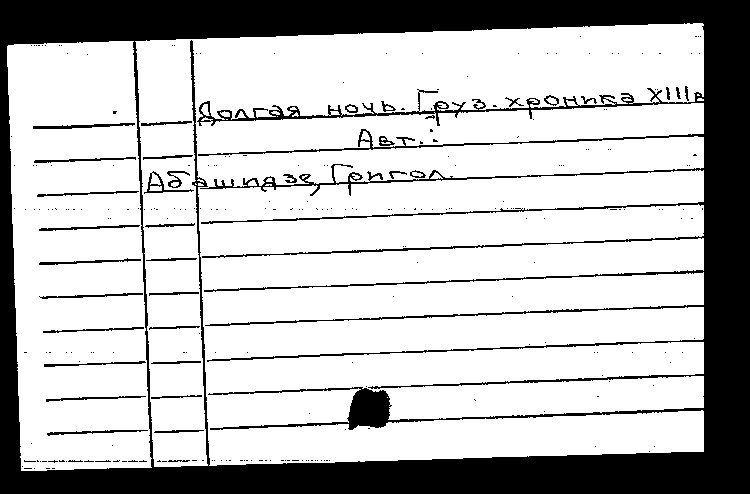 Долгая ночь. Груз. хроника XIII в
Авт.:
Абашидзе, Григол.